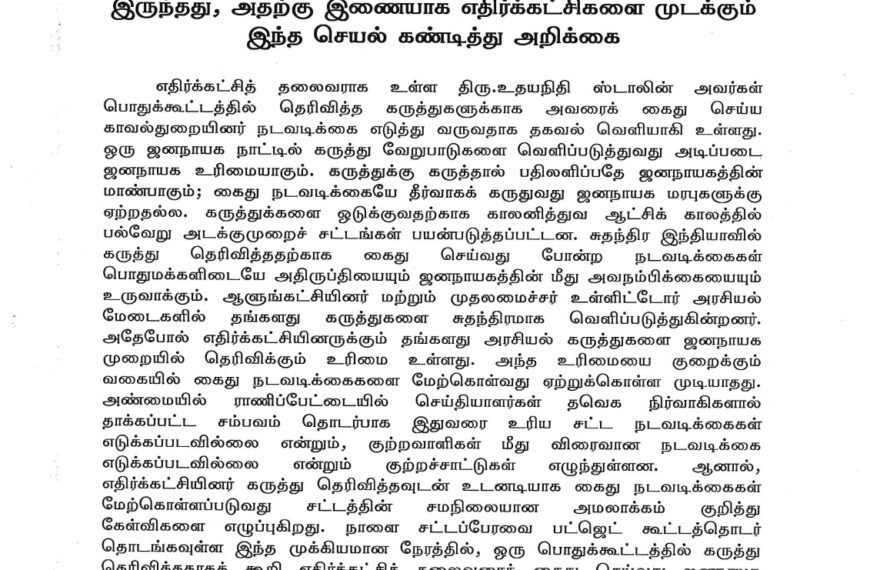 இருந்தது, அதற்கு இணையாக எதிர்க்கட்சிகளை முடக்கும்
இந்த செயல் கண்டித்து அறிக்கை
எதிர்க்கட்சித் தலைவராக உள்ள திரு.உதயநிதி ஸ்டாலின் அவர்கள்
பொதுக்கூட்டத்தில் தெரிவித்த கருத்துகளுக்காக அவரைக் கைது செய்ய
காவல்துறையினர் நடவடிக்கை எடுத்து வருவதாக தகவல் வெளியாகி உள்ளது.
ஒரு ஜனநாயக நாட்டில் கருத்து வேறுபாடுகளை வெளிப்படுத்துவது அடிப்படை
ஜனநாயக உரிமையாகும். கருத்துக்கு கருத்தால் பதிலளிப்பதே ஜனநாயகத்தின்
மாண்பாகும்; கைது நடவடிக்கையே தீர்வாகக் கருதுவது ஜனநாயக மரபுகளுக்கு
ஏற்றதல்ல. கருத்துக்களை ஒடுக்குவதற்காக காலனித்துவ ஆட்சிக் காலத்தில்
பல்வேறு அடக்குமுறைச் சட்டங்கள் பயன்படுத்தப்பட்டன. சுதந்திர இந்தியாவில்
கருத்து தெரிவித்ததற்காக கைது செய்வது போன்ற நடவடிக்கைகள்
பொதுமக்களிடையே அதிருப்தியையும் ஜனநாயகத்தின் மீது அவநம்பிக்கையையும்
உருவாக்கும். ஆளுங்கட்சியினர் மற்றும் முதலமைச்சர் உள்ளிட்டோர் அரசியல்
மேடைகளில் தங்களது கருத்துகளை சுதந்திரமாக வெளிப்படுத்துகின்றனர்.
அதேபோல் எதிர்க்கட்சியினருக்கும் தங்களது அரசியல் கருத்துகளை ஜனநாயக
முறையில் தெரிவிக்கும் உரிமை உள்ளது. அந்த உரிமையை குறைக்கும்
வகையில் கைது நடவடிக்கைகளை மேற்கொள்வது ஏற்றுக்கொள்ள முடியாதது.
அண்மையில் ராணிப்பேட்டையில் செய்தியாளர்கள் தவெக நிர்வாகிகளால்
தாக்கப்பட்ட சம்பவம் தொடர்பாக இதுவரை உரிய சட்ட நடவடிக்கைகள்
எடுக்கப்படவில்லை என்றும், குற்றவாளிகள் மீது விரைவான நடவடிக்கை
எடுக்கப்படவில்லை என்றும் குற்றச்சாட்டுகள் எழுந்துள்ளன. ஆனால்,
எதிர்க்கட்சியினர் கருத்து தெரிவித்தவுடன் உடனடியாக கைது நடவடிக்கைகள்
மேற்கொள்ளப்படுவது சட்டத்தின் சமநிலையான அமலாக்கம் குறித்து
கேள்விகளை எழுப்புகிறது. நாளை சட்டப்பேரவை பட்ஜெட் கூட்டத்தொடர்
தொடங்கவுள்ள இந்த முக்கியமான நேரத்தில், ஒரு பொதுக்கூட்டத்தில் கருத்து
தெரிவித்ததாகக் கூறி எதிர்க்கட்சித் தலைவரைக் கைது செய்வது ஜனநாயக